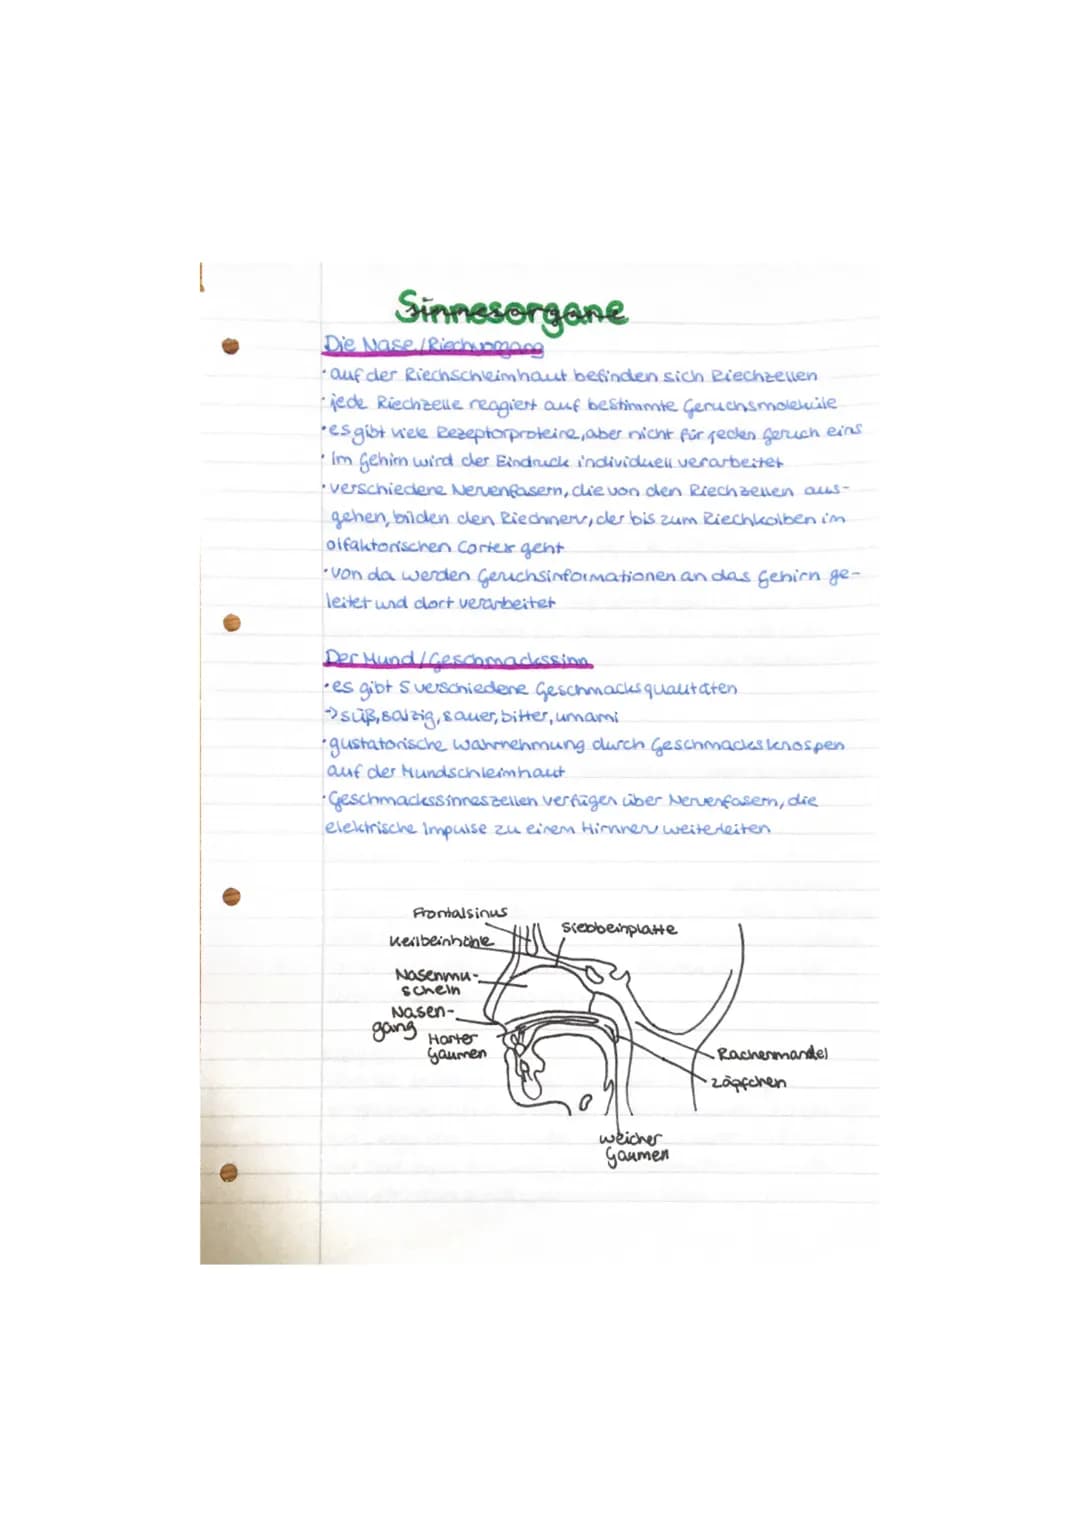 Sinnesorgane
Die Nase/Riechvorgang
· auf der Riechschleimhaut befinden sich Riechzellen
· jede Riechzelle reagiert auf bestimmte Geruchsmoleküle
· es gibt viele Rezeptorproteine, aber nicht für jeden Geruch eins
· Im Gehirn wird der Eindruck individuell verarbeitet
· verschiedene Nervenfasern, die von den Riechzellen aus-
gehen, bilden den Riechnerv, der bis zum Riechkolben im
olfaktorischen Cortex geht
· Von da werden Geruchsinformationen an das Gehirn ge-
leitet und dort verarbeitet
Der Mund/Geschmackssinn
· es gibt 5 verschiedene Geschmacksqualitäten
→ süß, salzig, sauer, bitter, umami
· gustatorische Wahrnehmung durch Geschmacksknospen
auf der Mundschleimhaut
· Geschmackssinneszellen verfügen über Nervenfasern, die
elektrische Impulse zu einem Hirnnerv weiterleiten
Frontalsinus
Siebbeinplatte
Keilbeinhöhle
Nasenmu-
scheln
Nasen-
gang
Harter
Gaumen
Rachenmandel
Zäpfchen
weicher
Gaumen